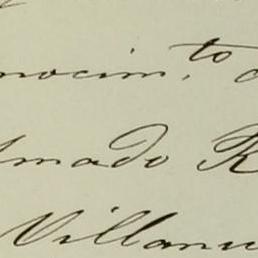 nocim.to
Amado R
Villanu